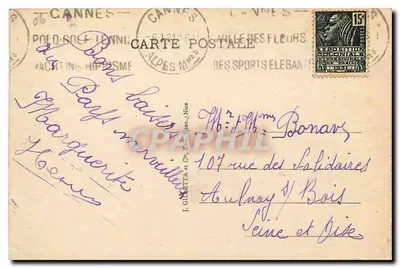 CANNES
CANNES
POLO GOLF TENNIS
VILLE DES FLEURS
YACHTING HIPPISME
DES SPORTS ELEGANTS
ALPES Mmes
CARTE POSTALE
15c
EXPOSITION
COLONIALE
Bons baisers
du Pays merveilleux
Marguerite
Henri
J. GILETTA et Cie, Nice
Mr & Mme Bonav
107 rue des Solidaires
Aulnay s/ Bois
Seine et Oise